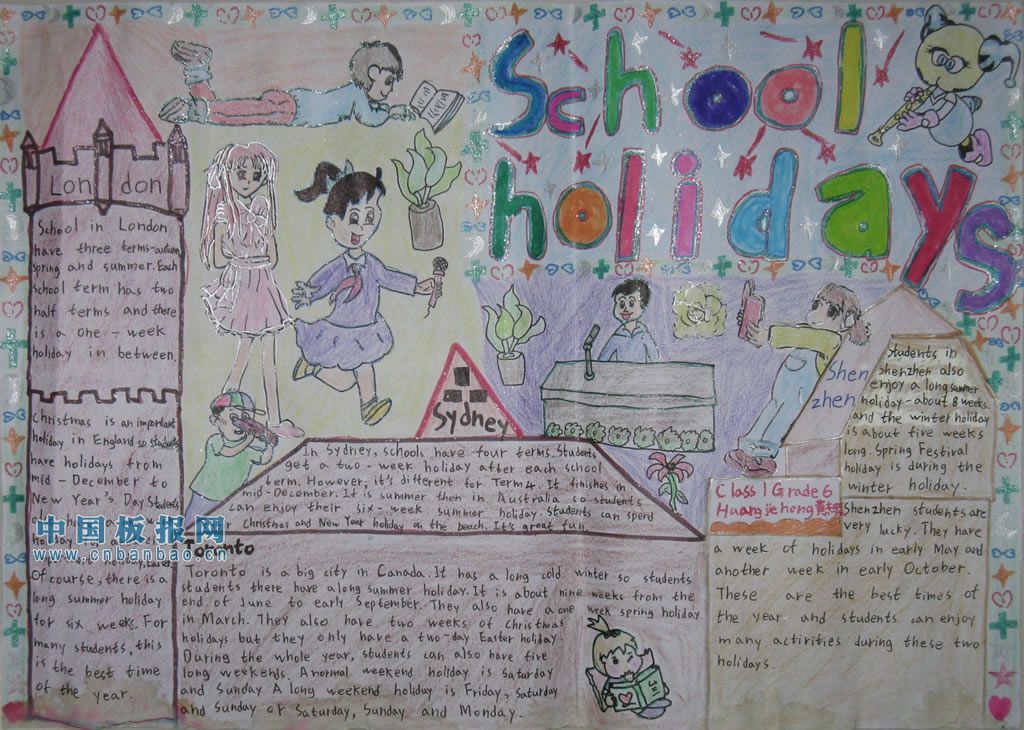 School
holidays
London
School in London
have three terms-autumn
spring and summer. Each
school term has two
half terms and there
is a one-week
holiday in between.
Christmas is an important
holiday in England so students
have holidays from
mid-December to
New Year's Day. Students
holiday
Of course, there is a
long summer holiday
for six weeks. For
many students, this
is the best time
of the year.
中国板报网
www.cnbanbao.cn
Sydney
In Sydney, schools have four terms. Students
get a two-week holiday after each school
term. However, it's different for Term 4. It finishes in
mid-December. It is summer then in Australia so students
can enjoy their six-week summer holiday. Students can spend
Christmas and New Year holiday on the beach. It's great fun.
Toronto
Toronto is a big city in Canada. It has a long cold winter so students
students there have a long summer holiday. It is about nine weeks from the
end of June to early September. They also have a one week spring holiday
in March. They also have two weeks of Christmas
holidays but they only have a two-day Easter holiday.
During the whole year, students can also have five
long weekends. A normal weekend holiday is Saturday
and Sunday A long weekend holiday is Friday, Saturday
and Sunday or Saturday, Sunday and Monday.
Shen
zhen
Students in
Shenzhen also
enjoy a long summer
holiday-about 8 weeks
and the winter holiday
is about five weeks
long. Spring Festival
holiday is during the
winter holiday.
Class 1 Grade 6
Huang jie hong
Shenzhen students are
very lucky. They have
a week of holidays in early May and
another week in early October.
These are the best times of
the year and students can enjoy
many activities during these two
holidays.